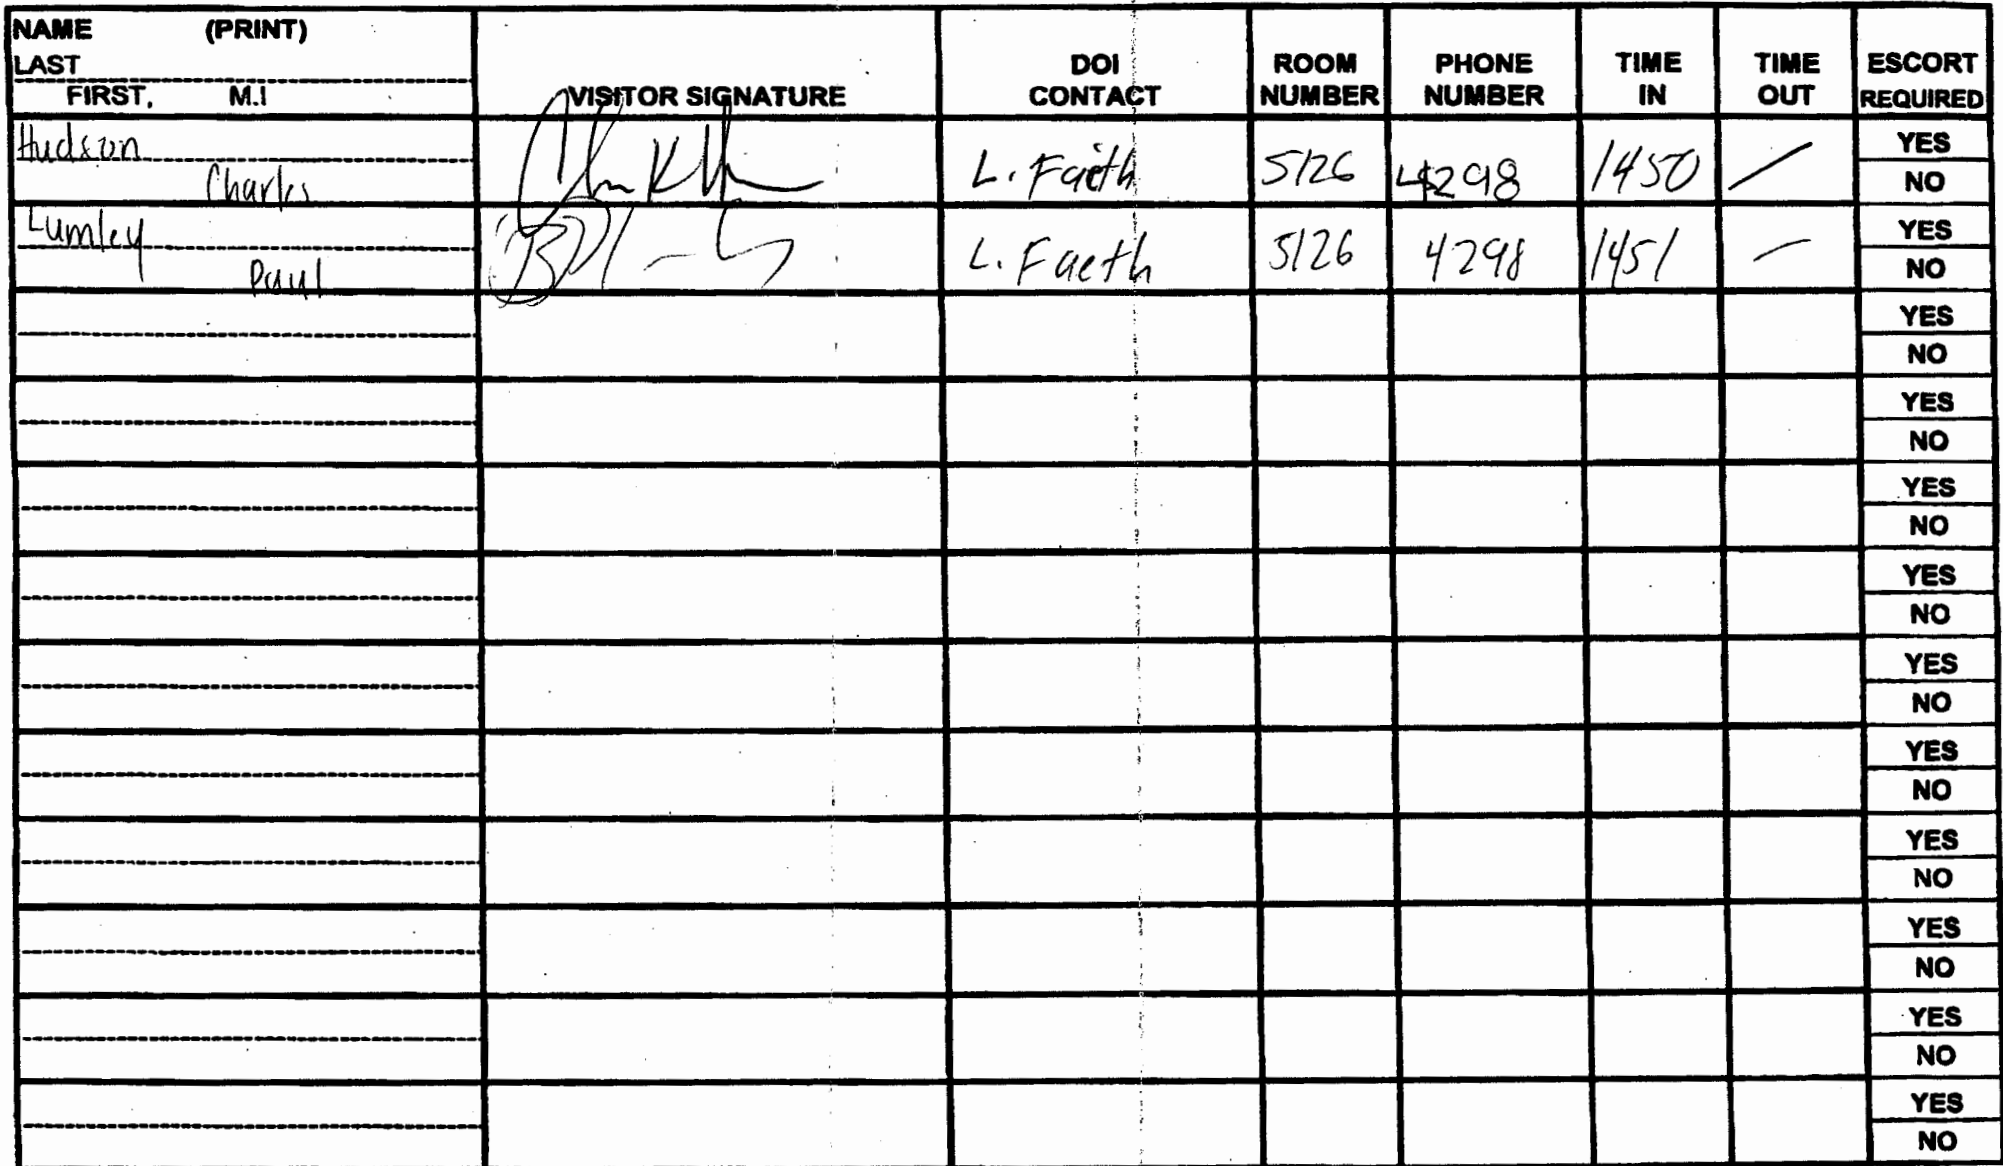 NAME (PRINT)
LAST
FIRST, M.I
VISITOR SIGNATURE
DOI CONTACT
ROOM NUMBER
PHONE NUMBER
TIME IN
TIME OUT
ESCORT REQUIRED
Hudson
Charles
L. Faeth 5126 4298 1450 /
YES
NO
Lumley
Paul
L. Faeth 5126 4298 1451 —
YES
NO
YES
NO
YES
NO
YES
NO
YES
NO
YES
NO
YES
NO
YES
NO
YES
NO
YES
NO
YES
NO